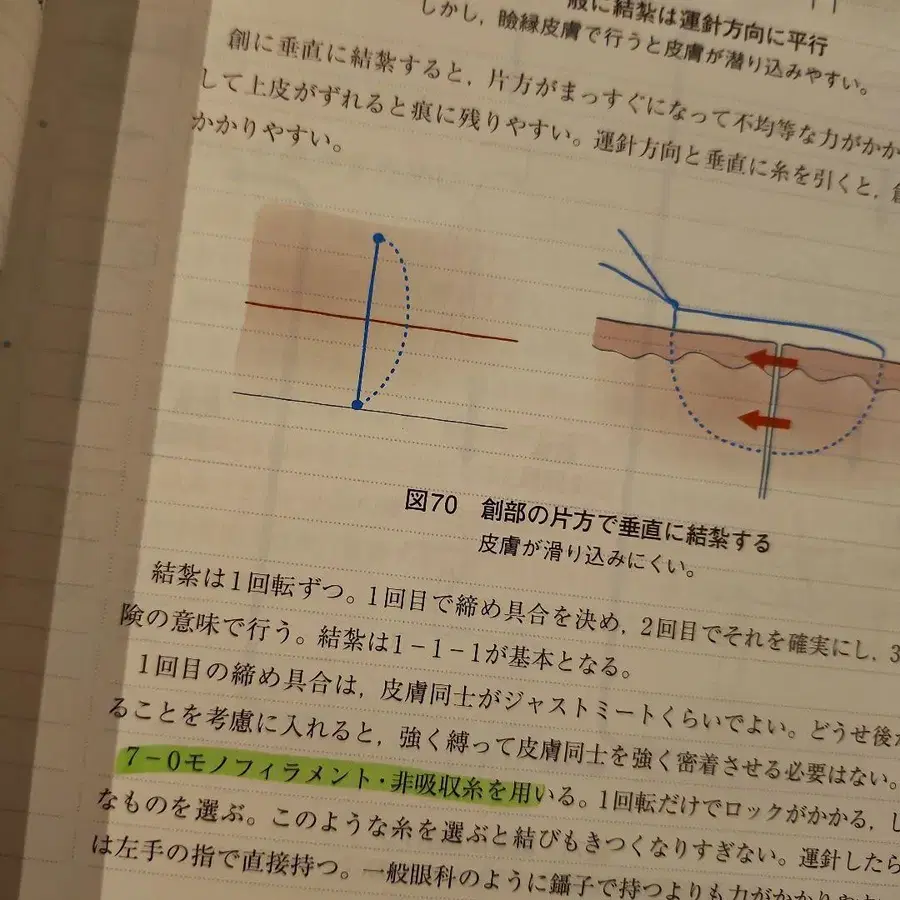 般に結紮は運針方向に平行
しかし，瞼縁皮膚で行うと皮膚が潜り込みやすい。
創に垂直に結紮すると，片方がまっすぐになって不均等な力がかか
して上皮がずれると痕に残りやすい。運針方向と垂直に糸を引くと，創
かかりやすい。
図70 創部の片方で垂直に結紮する
皮膚が滑り込みにくい。
結紮は1回転ずつ。1回目で締め具合を決め，2回目でそれを確実にし，3
険の意味で行う。結紮は1−1−1が基本となる。
1回目の締め具合は，皮膚同士がジャストミートくらいでよい。どうせ後
ることを考慮に入れると，強く縛って皮膚同士を強く密着させる必要はない。
7−0モノフィラメント・非吸収糸を用いる。1回転だけでロックがかかる，し
なものを選ぶ。このような糸を選ぶと結びもきつくなりすぎない。運針したら
は左手の指で直接持つ。一般眼科のように鑷子で持つよりも力がかかりやす